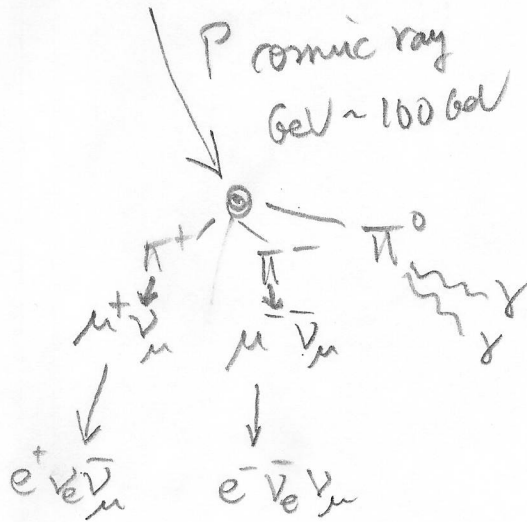 P cosmic ray
GeV ~ 100 GeV
π⁺ π⁻ π⁰
γ
μ⁺ν_μ μ⁻ν̄_μ γ
e⁺ ν_e ν̄_μ e⁻ ν̄_e ν_μ